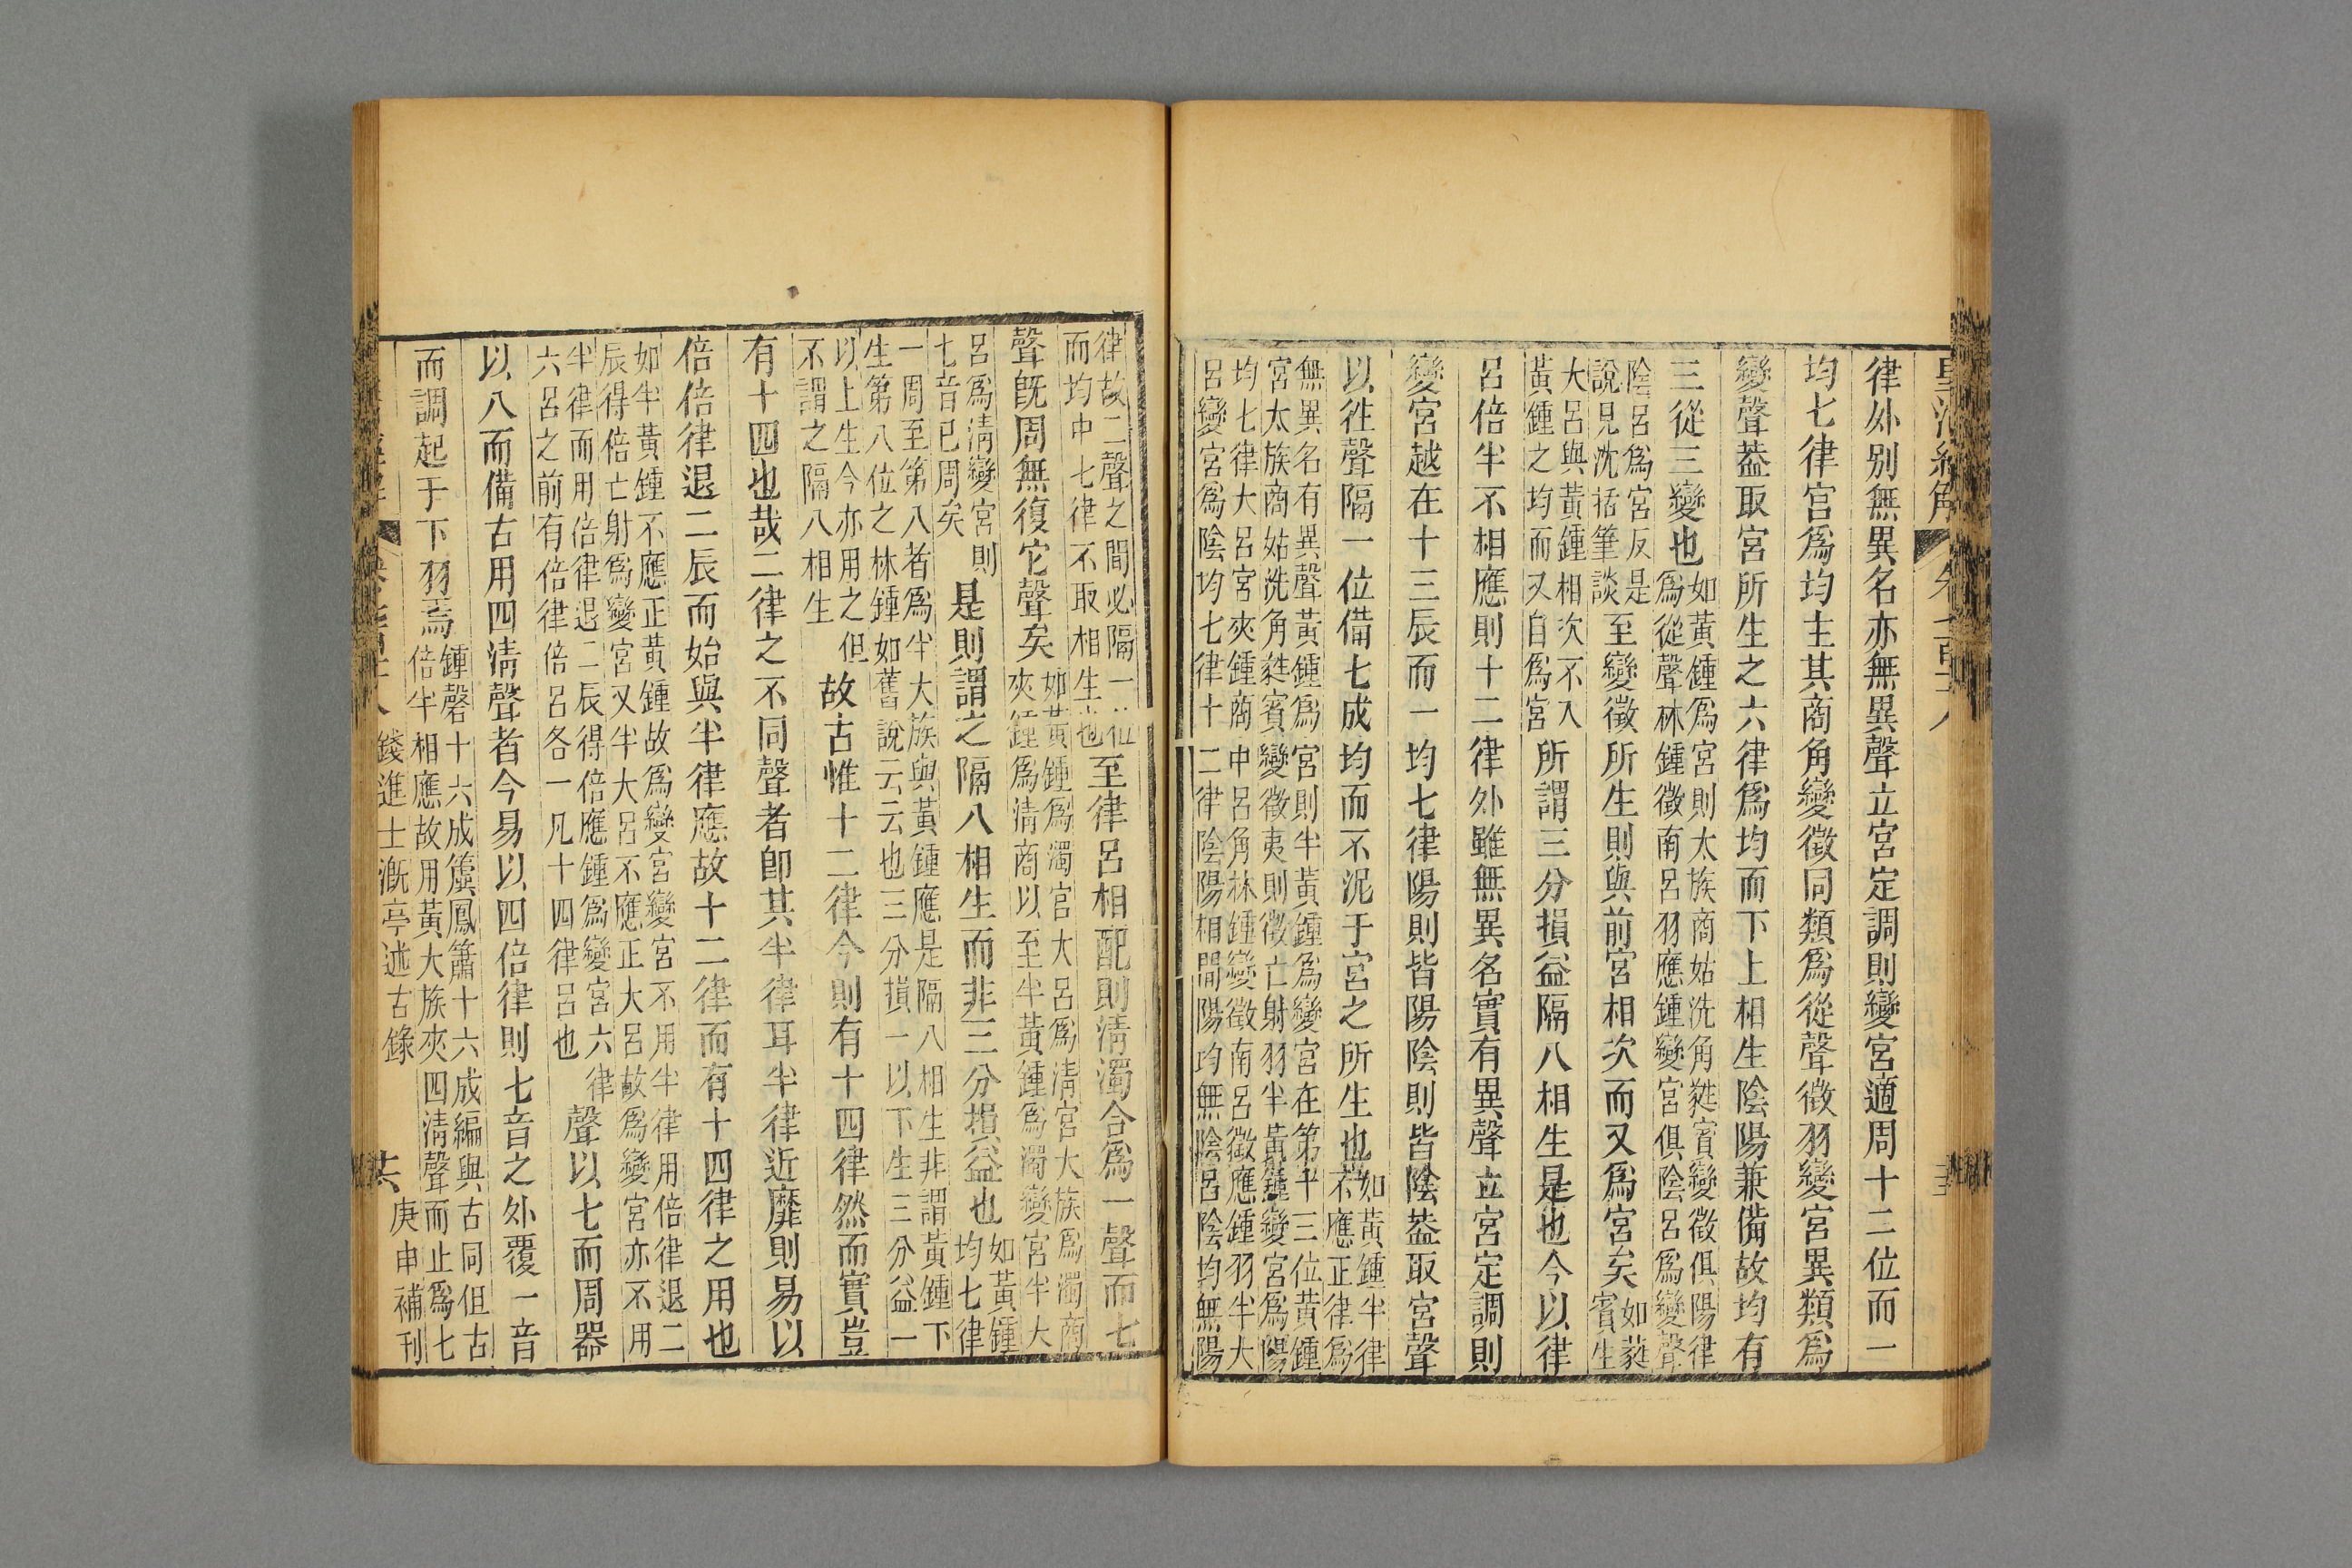 律外別無異名亦無異聲立宮定調則變宮適周十二位而一
均七律宮爲均主其商角變徵同類爲從聲徵羽變宮異類爲
變聲葢取宮所生之六律爲均而下上相生陰陽兼備故均有
三從三變也
如黃鍾爲宮則太族商姑洗角蕤賓變徵俱陽律
爲從聲林鍾徵南呂羽應鍾變宮俱陰呂爲變聲
陰呂爲宮反是
說見沈括筆談
至變徵所生則與前宮相次而又爲宮矣
如蕤
賓生
大呂與黃鍾相次不入
黃鍾之均而又自爲宮
所謂三分損益隔八相生是也今以律
呂倍半不相應則十二律外雖無異名實有異聲立宮定調則
變宮越在十三辰而一均七律陽則皆陽陰則皆陰葢取宮聲
以徃聲隔一位備七成均而不泥于宮之所生也
如黃鍾半律
不應正律爲
無異名有異聲黃鍾爲宮則半黃鍾爲變宮在第十三位黃鍾
宮太族商姑洗角蕤賓變徵夷則徵亡射羽半黃鍾變宮爲陽
均七律大呂宮夾鍾商中呂角林鍾變徵南呂徵應鍾羽半大
呂變宮爲陰均七律十二律陰陽相間陽均無陰呂陰均無陽
律故二聲之間必隔一位
而均中七律不取相生也
至律呂相配則淸濁合爲一聲而七
聲旣周無復它聲矣
如黃鍾爲濁宮大呂爲淸宮大族爲濁商
夾鍾爲淸商以至半黃鍾爲濁變宮半大
呂爲淸變宮則
七音已周矣
是則謂之隔八相生而非三分損益也
如黃鍾
均七律
一周至第八者爲半大族與黃鍾應是隔八相生非謂黃鍾下
生第八位之林鍾如舊說云云也三分損一以下生三分益一
以上生今亦用之但
不謂之隔八相生
故古惟十二律今則有十四律然而實豈
有十四也哉二律之不同聲者卽其半律耳半律近靡則易以
倍倍律退二辰而始與半律應故十二律而有十四律之用也
如半黃鍾不應正黃鍾故爲變宮變宮不用半律用倍律退二
辰得倍亡射爲變宮又半大呂不應正大呂故爲變宮亦不用
半律而用倍律退二辰得倍應鍾爲變宮六律
六呂之前有倍律倍呂各一凡十四律呂也
聲以七而周器
以八而備古用四淸聲者今易以四倍律則七音之外覆一音
而調起于下羽焉
鍾磬十六成簴鳳簫十六成編與古同但古
倍半相應故用黃大族夾四淸聲而止爲七
錢進士漑亭述古錄
庚申補刊